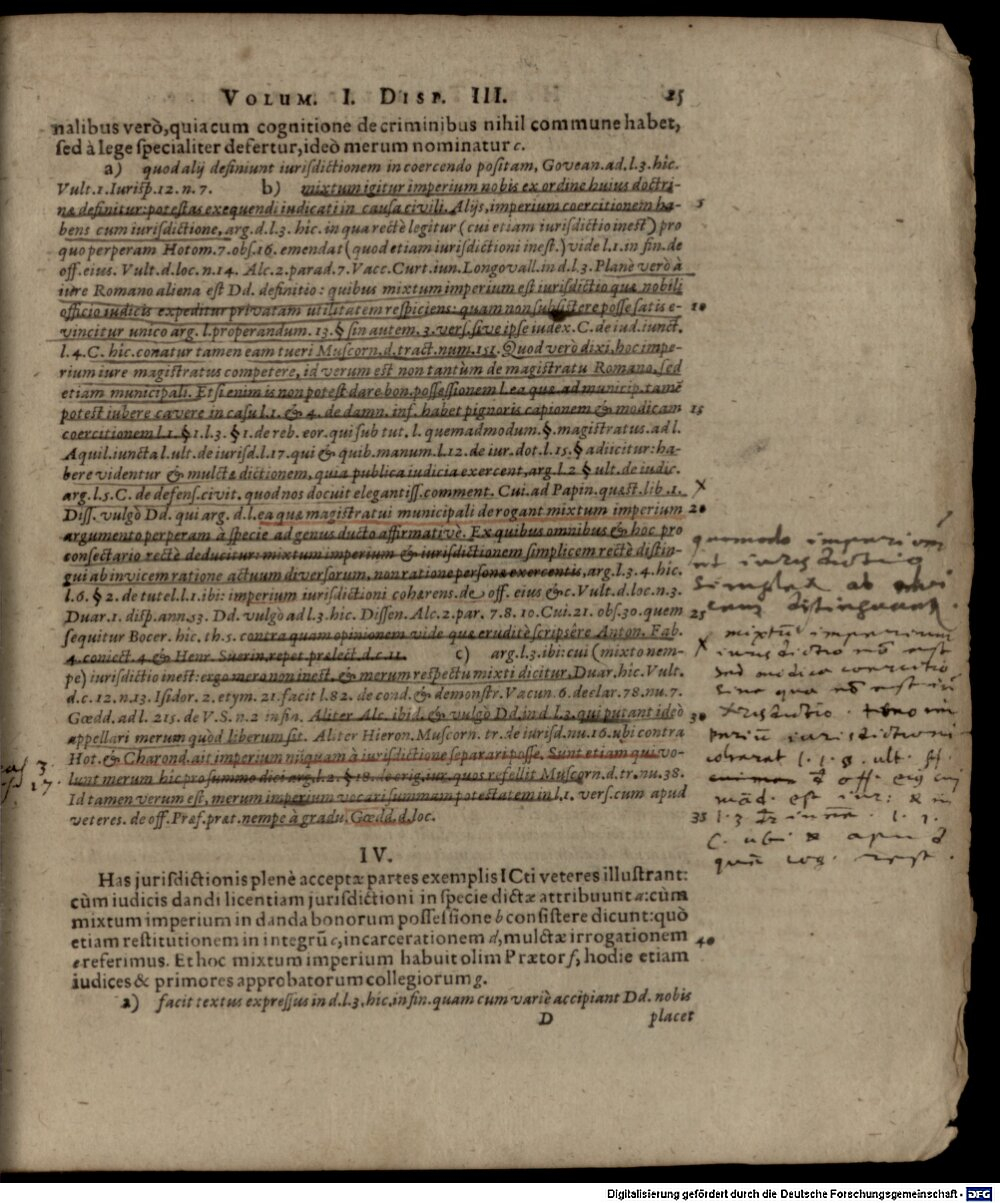 VOLUM. I. DISP. III. 25
nalibus verò, quia cum cognitione de criminibus nihil commune habet,
sed à lege specialiter defertur, ideò merum nominatur c.
a) quod alij definiunt iurisdictionem in coercendo positam, Govean. ad. l. 3. hîc.
Vult. 1. Iurisp. 12. n. 7. b) mixtum igitur imperium nobis ex ordine huius doctri-
næ definitur: potestas exequendi iudicati in causa civili. Alijs, imperium coercitionem ha- 5
bens cum iurisdictione, arg. d. l. 3. hic. in qua rectè legitur (cui etiam iurisdictio inest) pro
quo perperam Hotom. 7. obs. 16. emendat (quod etiam iurisdictioni inest.) vide l. 1. in fin. de
off. eius. Vult. d. loc. n. 14. Alc. 2. parad. 7. Vacc. Curt. iun. Longovall. in d. l. 3. Planè verò à
iure Romano aliena est Dd. definitio: quibus mixtum imperium est iurisdictio quæ nobili
officio iudicis expeditur privatam utilitatem respiciens: quam non subsistere posse satis e- 10
vincitur unico arg. l. properandum. 13. § sin autem. 3. vers. sive ipse iudex. C. de iud. iunct.
l. 4. C. hîc. conatur tamen eam tueri Muscorn. d. tract. num. 151. Quod verò dixi, hoc impe-
rium iure magistratus competere, id verum est non tantùm de magistratu Romano, sed
etiam municipali. Etsi enim is non potest dare bon. possessionem l. ea quæ. ad municip. tamẽ
potest iubere cavere in casu l. 1. & 4. de damn. inf. habet pignoris capionem & modicam 15
coercitionem l. 1. § 1. l. 3. § 1. de reb. eor. qui sub tut. l. quemadmodum. §. magistratus. ad l.
Aquil. iuncta l. ult. de iurisd. l. 17. qui & quib. manum. l. 12. de iur. dot. l. 15. § adiicitur: ha-
bere videntur & mulctæ dictionem, quia publica iudicia exercent, arg. l. 2 § ult. de iudic.
arg. l. 5. C. de defens. civit. quod nos docuit elegantiss. comment. Cui. ad Papin. quæst. lib. 1.
Diss. vulgò Dd. qui arg. d. l. ea quæ magistratui municipali derogant mixtum imperium 20
argumento perperam à specie ad genus ducto affirmativè. Ex quibus omnibus & hoc pro
consectario rectè deducitur: mixtum imperium & iurisdictionem simplicem rectè distin-
gui ab invicem ratione actuum diversorum, non ratione personæ exercentis, arg. l. 3. 4. hic.
l. 6. § 2. de tutel. l. 1. ibi: imperium iurisdictioni cohærens. de off. eius &c. Vult. d. loc. n. 3.
Duar. 1. disp. ann. 53. Dd. vulgò ad l. 3. hic. Dissen. Alc. 2. par. 7. 8. 10. Cui. 21. obs. 30. quem 25
sequitur Bocer. hic. th. 5. contra quam opinionem vide quæ eruditè scripsêre Anton. Fab.
4. coniect. 4. & Henr. Suerin. repet. prælect. d. c. 11. c) arg. l. 3. ibi: cui (mixto nem-
pe) iurisdictio inest: ergo mero non inest, & merum respectu mixti dicitur, Duar. hic. Vult.
d. c. 12. n. 13. Isidor. 2. etym. 21. facit l. 82. de cond. & demonstr. Vacun. 6. declar. 78. nu. 7.
Gœdd. ad l. 215. de V. S. n. 2 in fin. Aliter Alc. ibid. & vulgò Dd. in d. l. 3. qui putant ideò 30
appellari merum quòd liberum sit. Aliter Hieron. Muscorn. tr. de iurisd. nu. 16. ubi contra
Hot. & Charond. ait imperium nũquam à iurisdictione separari posse. Sunt etiam qui vo-
lunt merum hic pro summo dici arg. l. 2. § 18. de orig. iur. quos refellit Muscorn. d. tr. nu. 38.
Id tamen verum est, merum imperium vocari summam potestatem in l. 1. vers. cum apud
veteres. de off. Præf. præt. nempe à gradu. Gœdd. d. loc. 35
quomodo imperium
et iurisdictio
simplex ab invi
cem distinguant.
mixtũ imperium
iurisdictio nõ est
sed modica coercitio
sine qua nõ est
IV.
Has jurisdictionis plenè acceptæ partes exemplis ICti veteres illustrant:
cùm iudicis dandi licentiam jurisdictioni in specie dictæ attribuunt a: cùm
mixtum imperium in danda bonorum possessione b consistere dicunt: quò
etiam restitutionem in integrũ c, incarcerationem d, mulctæ irrogationem 40
e referimus. Et hoc mixtum imperium habuit olim Prætor f, hodie etiam
iudices & primores approbatorum collegiorum g.
a) facit textus expressus in d. l. 3. hic. in fin. quam cum variè accipiant Dd. nobis
D placet
Digitalisierung gefördert durch die Deutsche Forschungsgemeinschaft - DFG